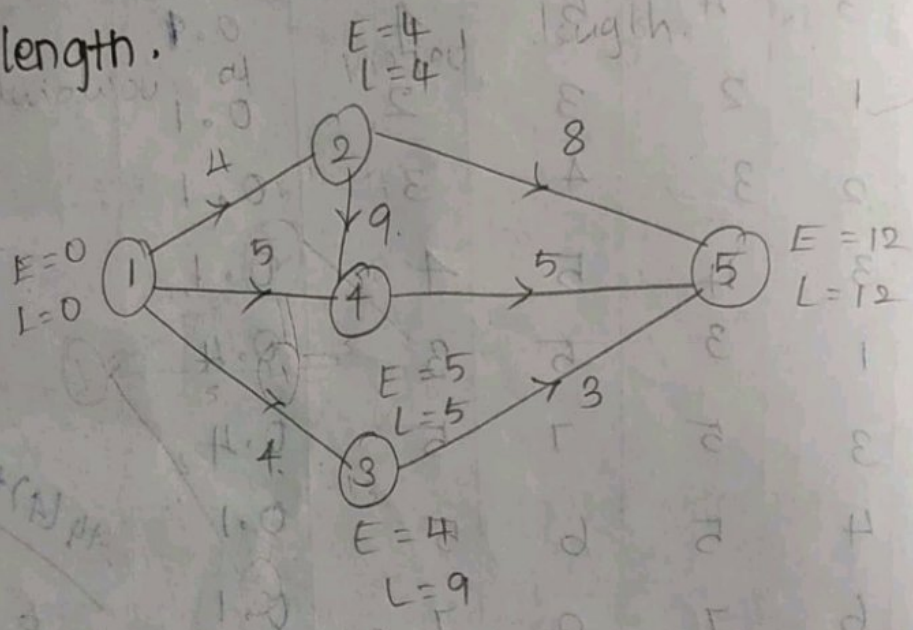 length.
E=4
L=4
2
4
8
9.
E=0
L=0
1
5
4
5
5
E=12
L=12
E=5
L=5
3
4.
3
E=4
L=9